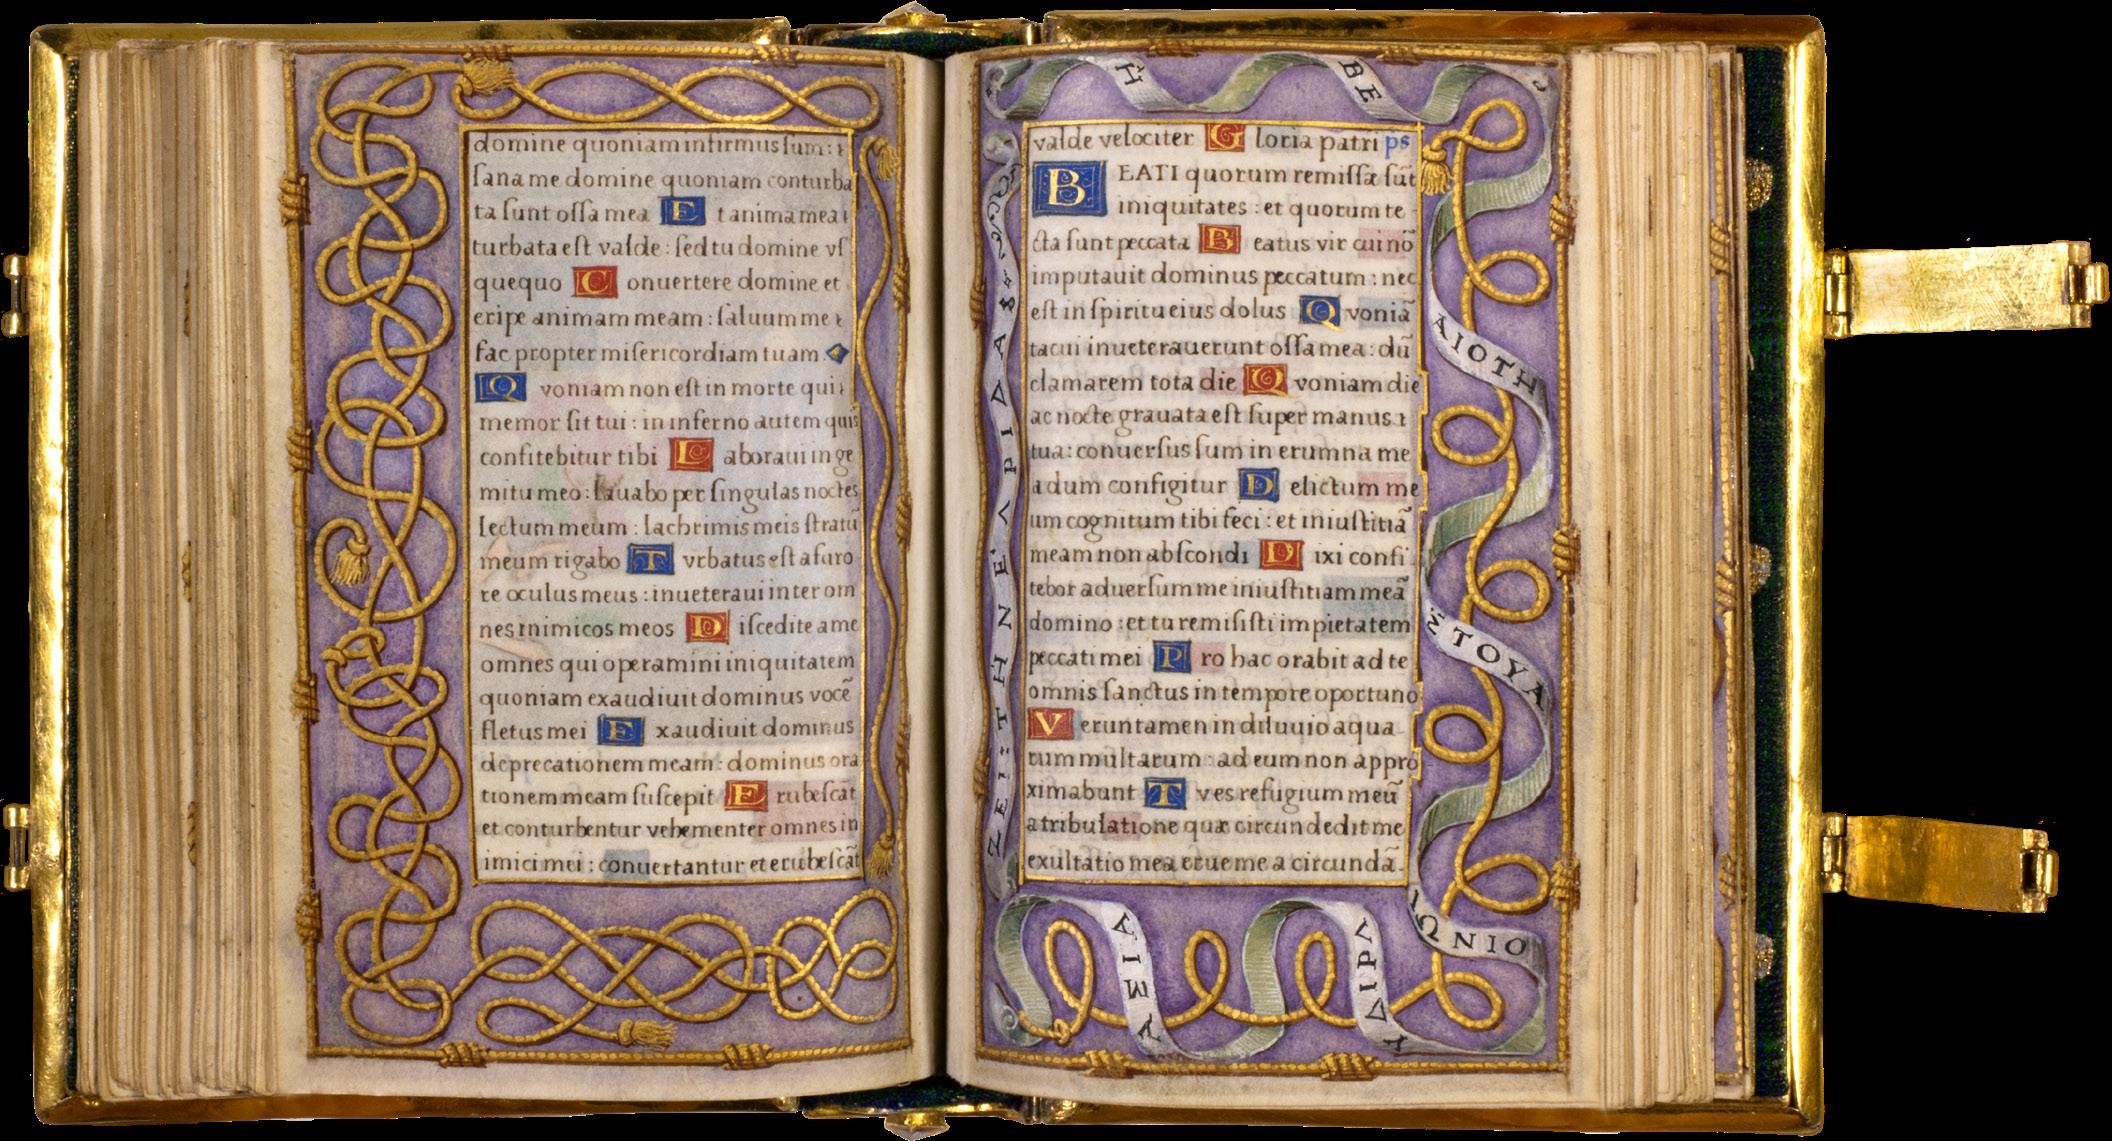 domine quoniam infirmus sum : ⁊
ſana me domine quoniam conturba
ta ſunt oſſa mea E t anima mea ⁊
turbata eſt valde : ſed tu domine vſ
quequo C onuertere domine et
eripe animam meam : ſaluum me ⁊
fac propter miſericordiam tuam .
Q voniam non eſt in morte qui ⁊
memor ſit tui : in inferno autem quis
confitebitur tibi L aboraui in ge
mitu meo : lauabo per ſingulas noctes
lectum meum : lachrimis meis ſtratū
meum rigabo T vrbatus eſt a furo
re oculus meus : inueteraui inter om
nes inimicos meos D iſcedite a me
omnes qui operamini iniquitatem
quoniam exaudiuit dominus vocē
fletus mei E xaudiuit dominus
deprecationem meam : dominus ora
tionem meam ſuſcepit E rubeſcāt
et conturbentur vehementer omnes in
imici mei : conuertantur et erubeſcāt
valde velociter G loria patri ps
B EATI quorum remiſſæ ſūt
iniquitates : et quorum te
cta ſunt peccata B eatus vir cui nō
imputauit dominus peccatum : nec
eſt in ſpiritu eius dolus Q voniā
tacui inueterauerunt oſſa mea : dū
clamarem tota die Q voniam die
ac nocte grauata eſt ſuper manus ⁊
tua : conuerſus ſum in erumna me
a dum configitur D elictum me
um cognitum tibi feci : et iniuſtitiā
meam non abſcondi D ixi confi
tebor aduerſum me iniuſtitiam meā
domino : et tu remiſiſti impietatem
peccati mei P ro hac orabit ad te
omnis ſanctus in tempore oportuno
V eruntamen in diluuio aqua
rum multarum : ad eum non appro
ximabunt T v es refugium meū
a tribulatione quæ circundedit me
exultatio mea erue me a circundā .
Ἡ ΒΕ
ΑΙΟΤΗ
ΣΤΟΥΑ
ΙΩΝΙΟ